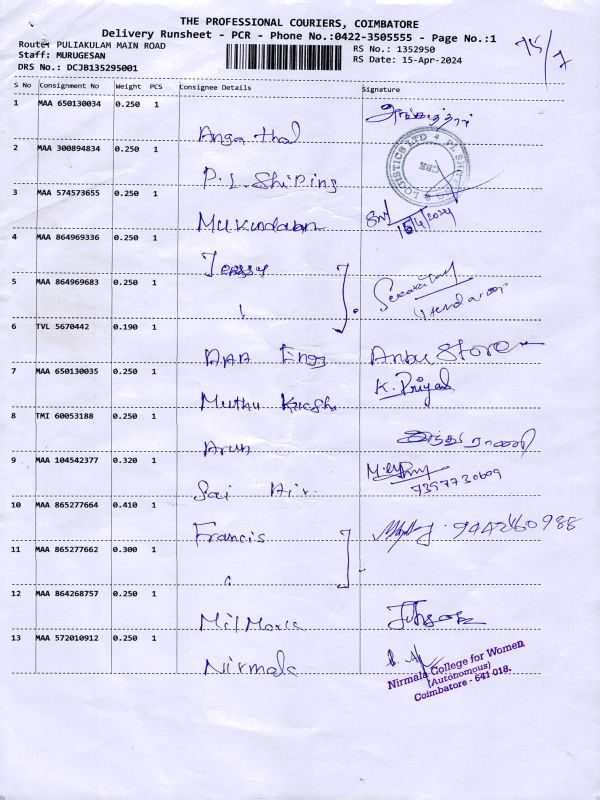 THE PROFESSIONAL COURIERS, COIMBATORE
Delivery Runsheet - PCR - Phone No.:0422-3505555 - Page No.:1
Route: PULIAKULAM MAIN ROAD
Staff: MURUGESAN
DRS No.: DCJB135295001
RS No.: 1352950
RS Date: 15-Apr-2024
75/7
S No Consignment No Weight PCS Consignee Details Signature
1 MAA 650130034 0.250 1
Angathal
2 MAA 300894834 0.250 1
P.L. Shiping
LOGISTICS LTD
CBE
3 MAA 574573655 0.250 1
Mukundaan
15/4/2024
4 MAA 864969336 0.250 1
Jessy
5 MAA 864969683 0.250 1
"
6 TVL 5670442 0.190 1
AAA Engg Anbu Store
7 MAA 650130035 0.250 1
K. Priya
Muthu
8 TMI 60053188 0.250 1
Arun
9 MAA 104542377 0.320 1
Sai Air
7397730609
10 MAA 865277664 0.410 1
Francis 9442460988
11 MAA 865277662 0.300 1
"
12 MAA 864268757 0.250 1
13 MAA 572010912 0.250 1
Nirmala
Nirmala College for Women
(Autonomous)
Coimbatore - 641 018.